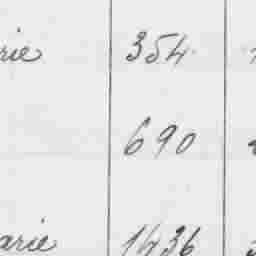 rie 354
690
arie 1436